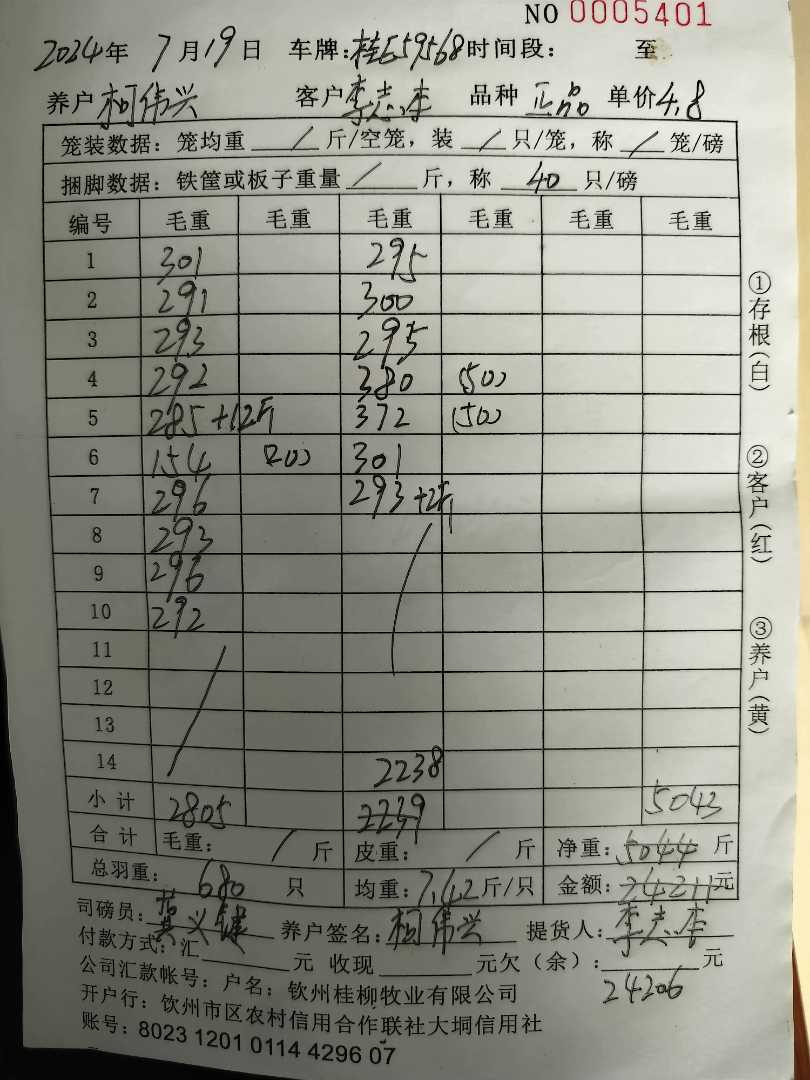 NO 0005401
2024年 7月19日 车牌:桂E59568 时间段: 至
养户 柯伟兴 客户 李志李 品种 正品 单价 4.8
笼装数据: 笼均重 / 斤/空笼, 装 / 只/笼, 称 / 笼/磅
捆脚数据: 铁筐或板子重量 / 斤, 称 40 只/磅
编号 毛重 毛重 毛重 毛重 毛重 毛重
1 301 295
2 291 300
3 293 295
4 292 380 (50)
5 285+12斤 372 (50)
6 154 (20) 301
7 296 293+2斤
8 293
9 296
10 292
11
12
13
14 2238
小计 2805 2239 5043
合计 毛重: / 斤 皮重: / 斤 净重: 5044 斤
总羽重: 680 只 均重: 7.42 斤/只 金额: 24211 元
司磅员: 黄义健 养户签名: 柯伟兴 提货人: 李志李
付款方式: 汇 元 收现 元欠(余): 元
24206
公司汇款帐号: 户名: 钦州桂柳牧业有限公司
开户行: 钦州市区农村信用合作联社大垌信用社
账号: 8023 1201 0114 4296 07
①存根(白)
②客户(红)
③养户(黄)